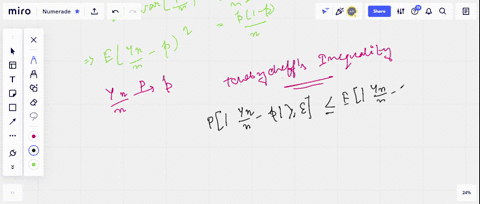 miro Numerade Share
var(Yn/n) = p(1-p)/n
⇒ E(Yn/n - p)² =
Yn/n P→ p
Tchebycheff's Inequality
P[| Yn/n - p | ≥ ε] ≤ E[| Yn/n -
24%